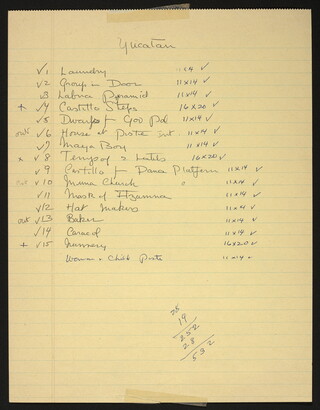 Yucatan
✓1 Laundry 11x14 ✓
✓2 Group in Door 11x14 ✓
✓3 Labna Pyramid 11x14 ✓
+ ✓4 Castillo Steps 16x20 ✓
✓5 Dwarf's 11x14 ✓
out ✓6 House at 11x14 ✓
✓7 Maya Boy 11x14 ✓
x ✓8 Temple of 3 Lintels 16x20 ✓
✓9 Castillo fr Dance Platform 11x14 ✓
out ✓10 Muna Church 11x14 ✓
✓11 Mask of Itzamna 11x14 ✓
✓12 Hat Makers 11x14 ✓
out ✓13 Baker 11x14 ✓
✓14 Caracol 11x14 ✓
+ ✓15 Nursery 16x20 ✓
Woman & Child 11x14
28
19
252
28
532